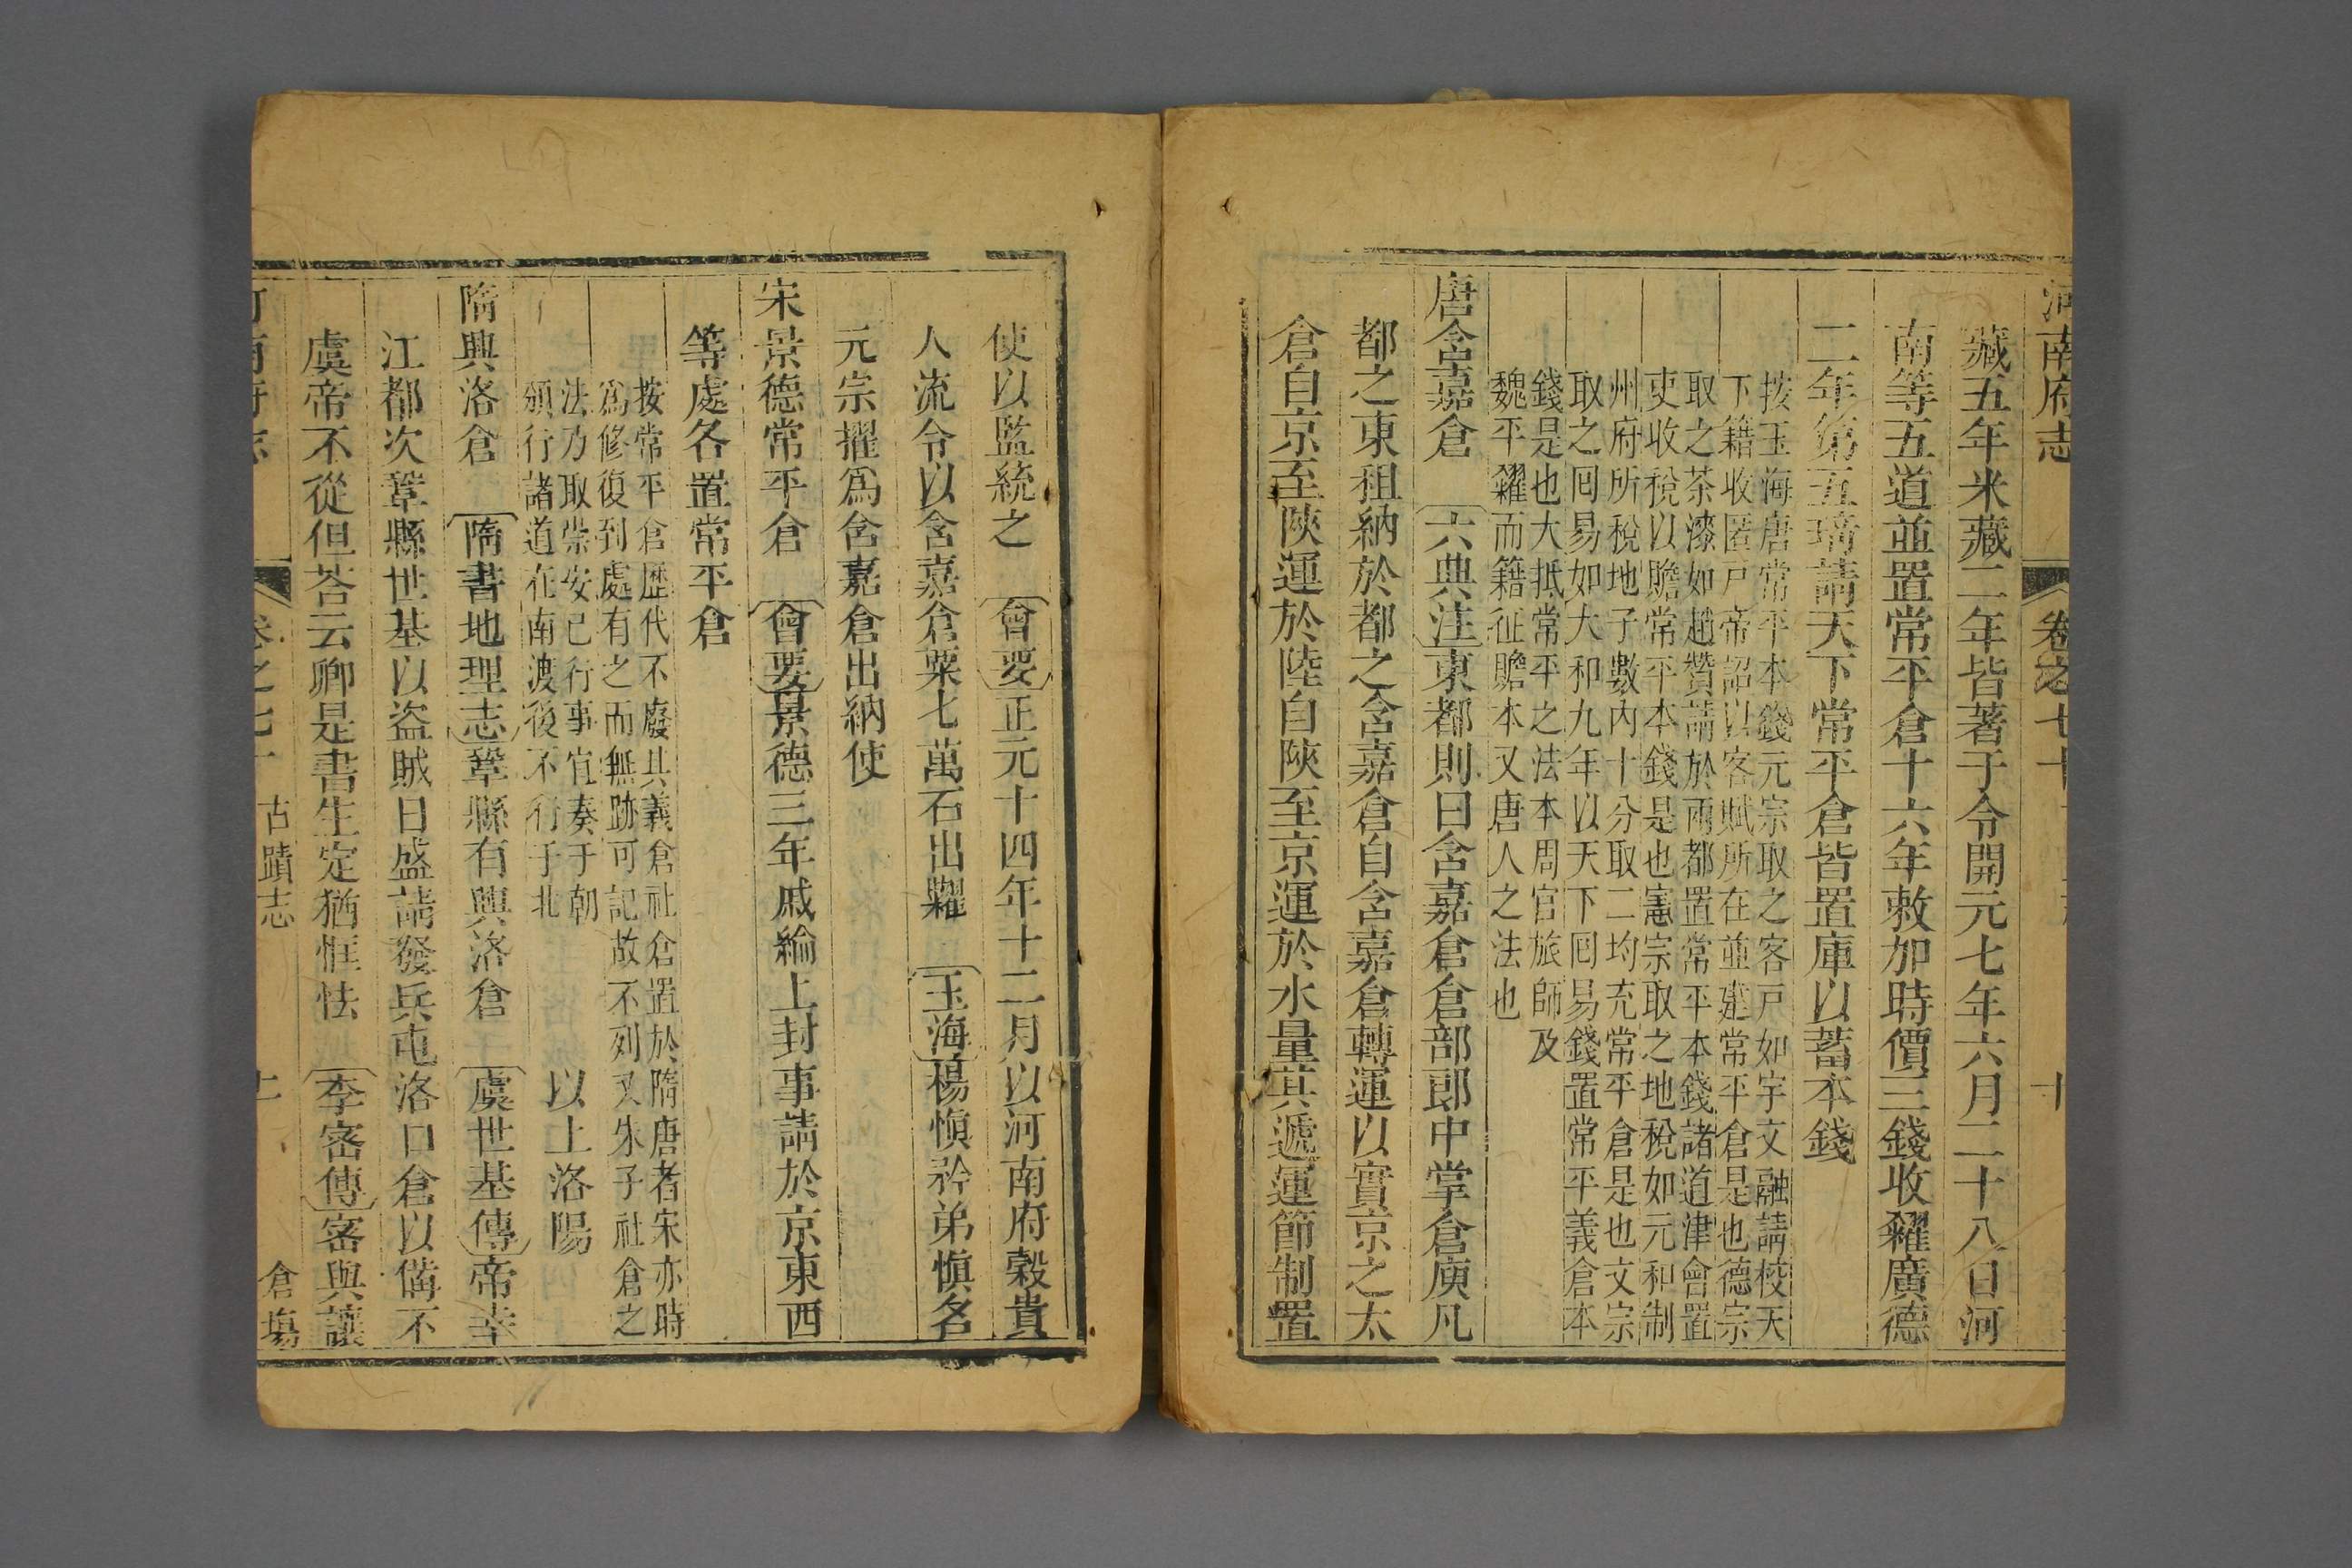 河南府志 卷之七十 十
藏五年米藏二年皆著于令開元七年六月二十八日河
南等五道並置常平倉十六年敕加時價三錢收糴廣德
二年第五琦請天下常平倉皆置庫以蓄本錢
按玉海唐常平本錢元宗取之客戸如宇文融請校天
下籍收匿戸帝詔以客賦所在並建常平倉是也德宗
取之茶漆如趙贊請於兩都置常平本錢諸道津會置
吏收稅以贍常平本錢是也憲宗取之地稅如元和制
州府所稅地子數內十分取二均充常平倉是也文宗
取之囘易如大和九年以天下囘易錢置常平義倉本
錢是也大抵常平之法本周官旅師及
魏平糴而籍征贍本又唐人之法也
唐含嘉倉 六典注東都則曰含嘉倉倉部郎中掌倉庾凡
都之東租納於都之含嘉倉自含嘉倉轉運以實京之太
倉自京至陝運於陸自陝至京運於水量其遞運節制置
使以監統之 會要正元十四年十二月以河南府穀貴
人流令以含嘉倉粟七萬石出糶 玉海楊愼矜弟愼名
元宗擢爲含嘉倉出納使
宋景德常平倉 會要景德三年戚綸上封事請於京東西
等處各置常平倉
按常平倉歷代不廢其義倉社倉置於隋唐者宋亦時
爲修復到處有之而無跡可記故不列又朱子社倉之
法乃取崇安已行事宜奏于朝
頒行諸道在南渡後不行于北
以上洛陽
隋興洛倉 隋書地理志鞏縣有興洛倉 虞世基傳帝幸
江都次鞏縣世基以盜賊日盛請發兵屯洛口倉以備不
虞帝不從但荅云卿是書生定猶恇怯 李密傳密與讓
河南府志 卷之七十 古蹟志 倉塲